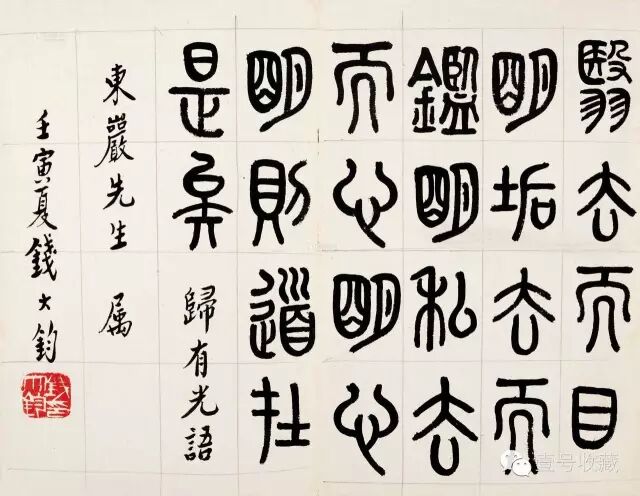 翳去而目
明垢去而
鑑明私去
而心明心
明則道在
是矣 歸有光語
東巖先生 属
壬寅夏錢大鈞
壹号收藏